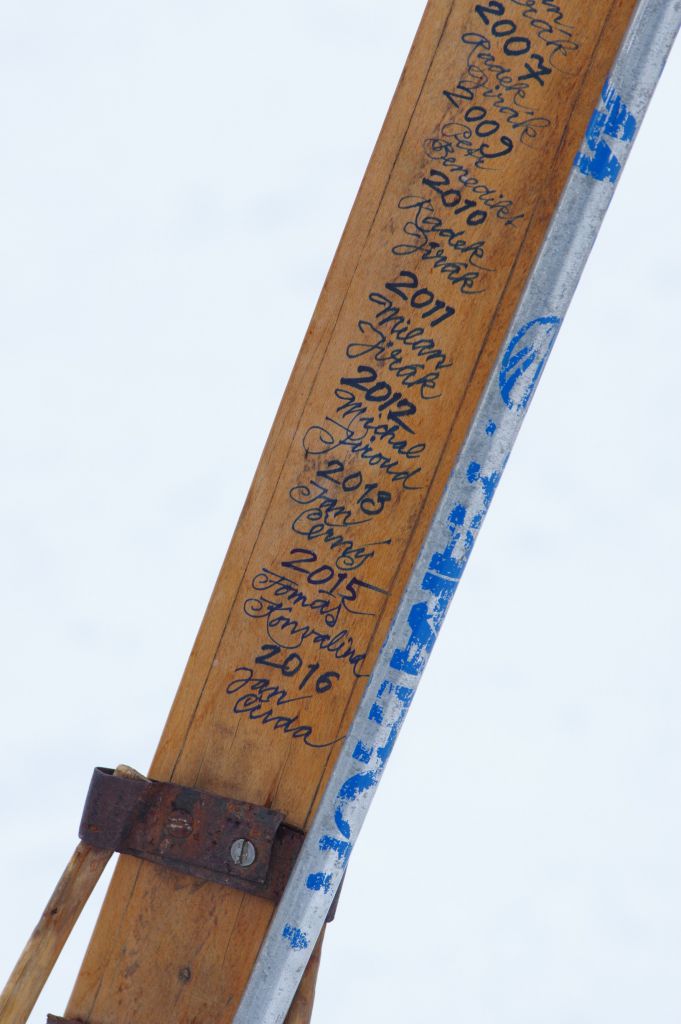 Jirák
2007
Radek
Jirák
2009
Petr
Benedikt
2010
Radek
Jirák
2011
Milan
Jirák
2012
Michal
Jiroud
2013
Jan
Černý
2015
Tomáš
Konvalina
2016
Jan
Cinda